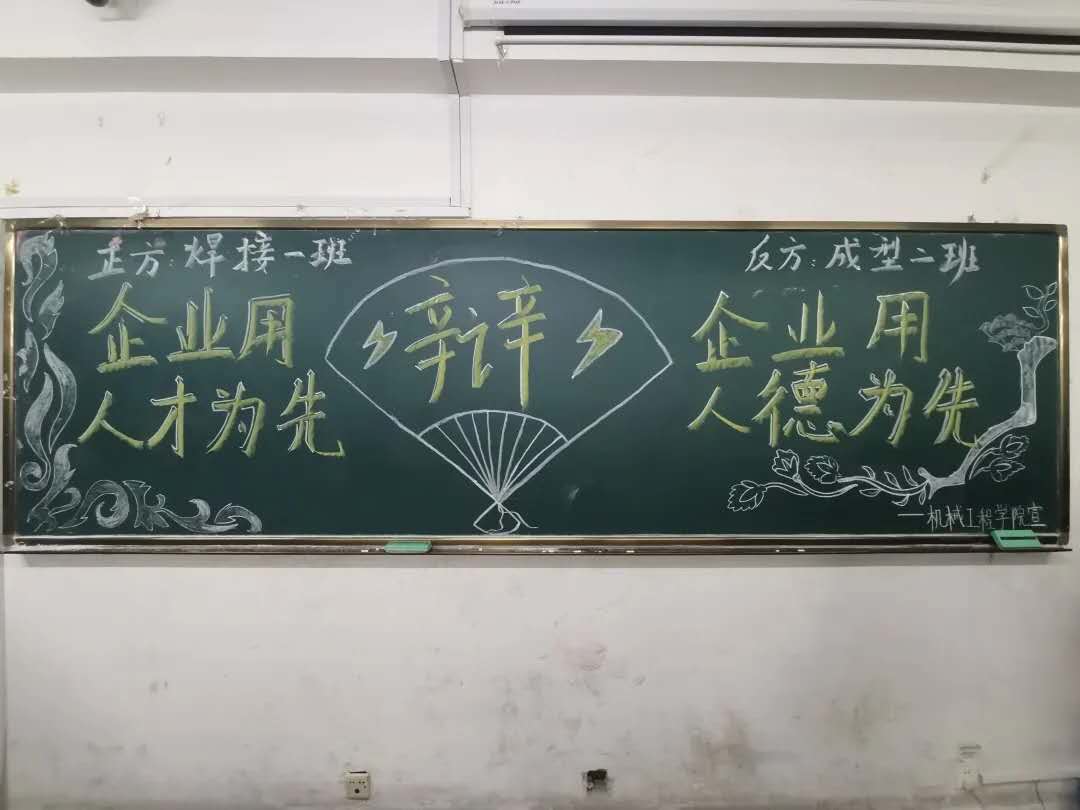 正方:焊接一班
企业用
人才为先
辩
反方:成型二班
企业用
人德为先
—机械工程学院宣